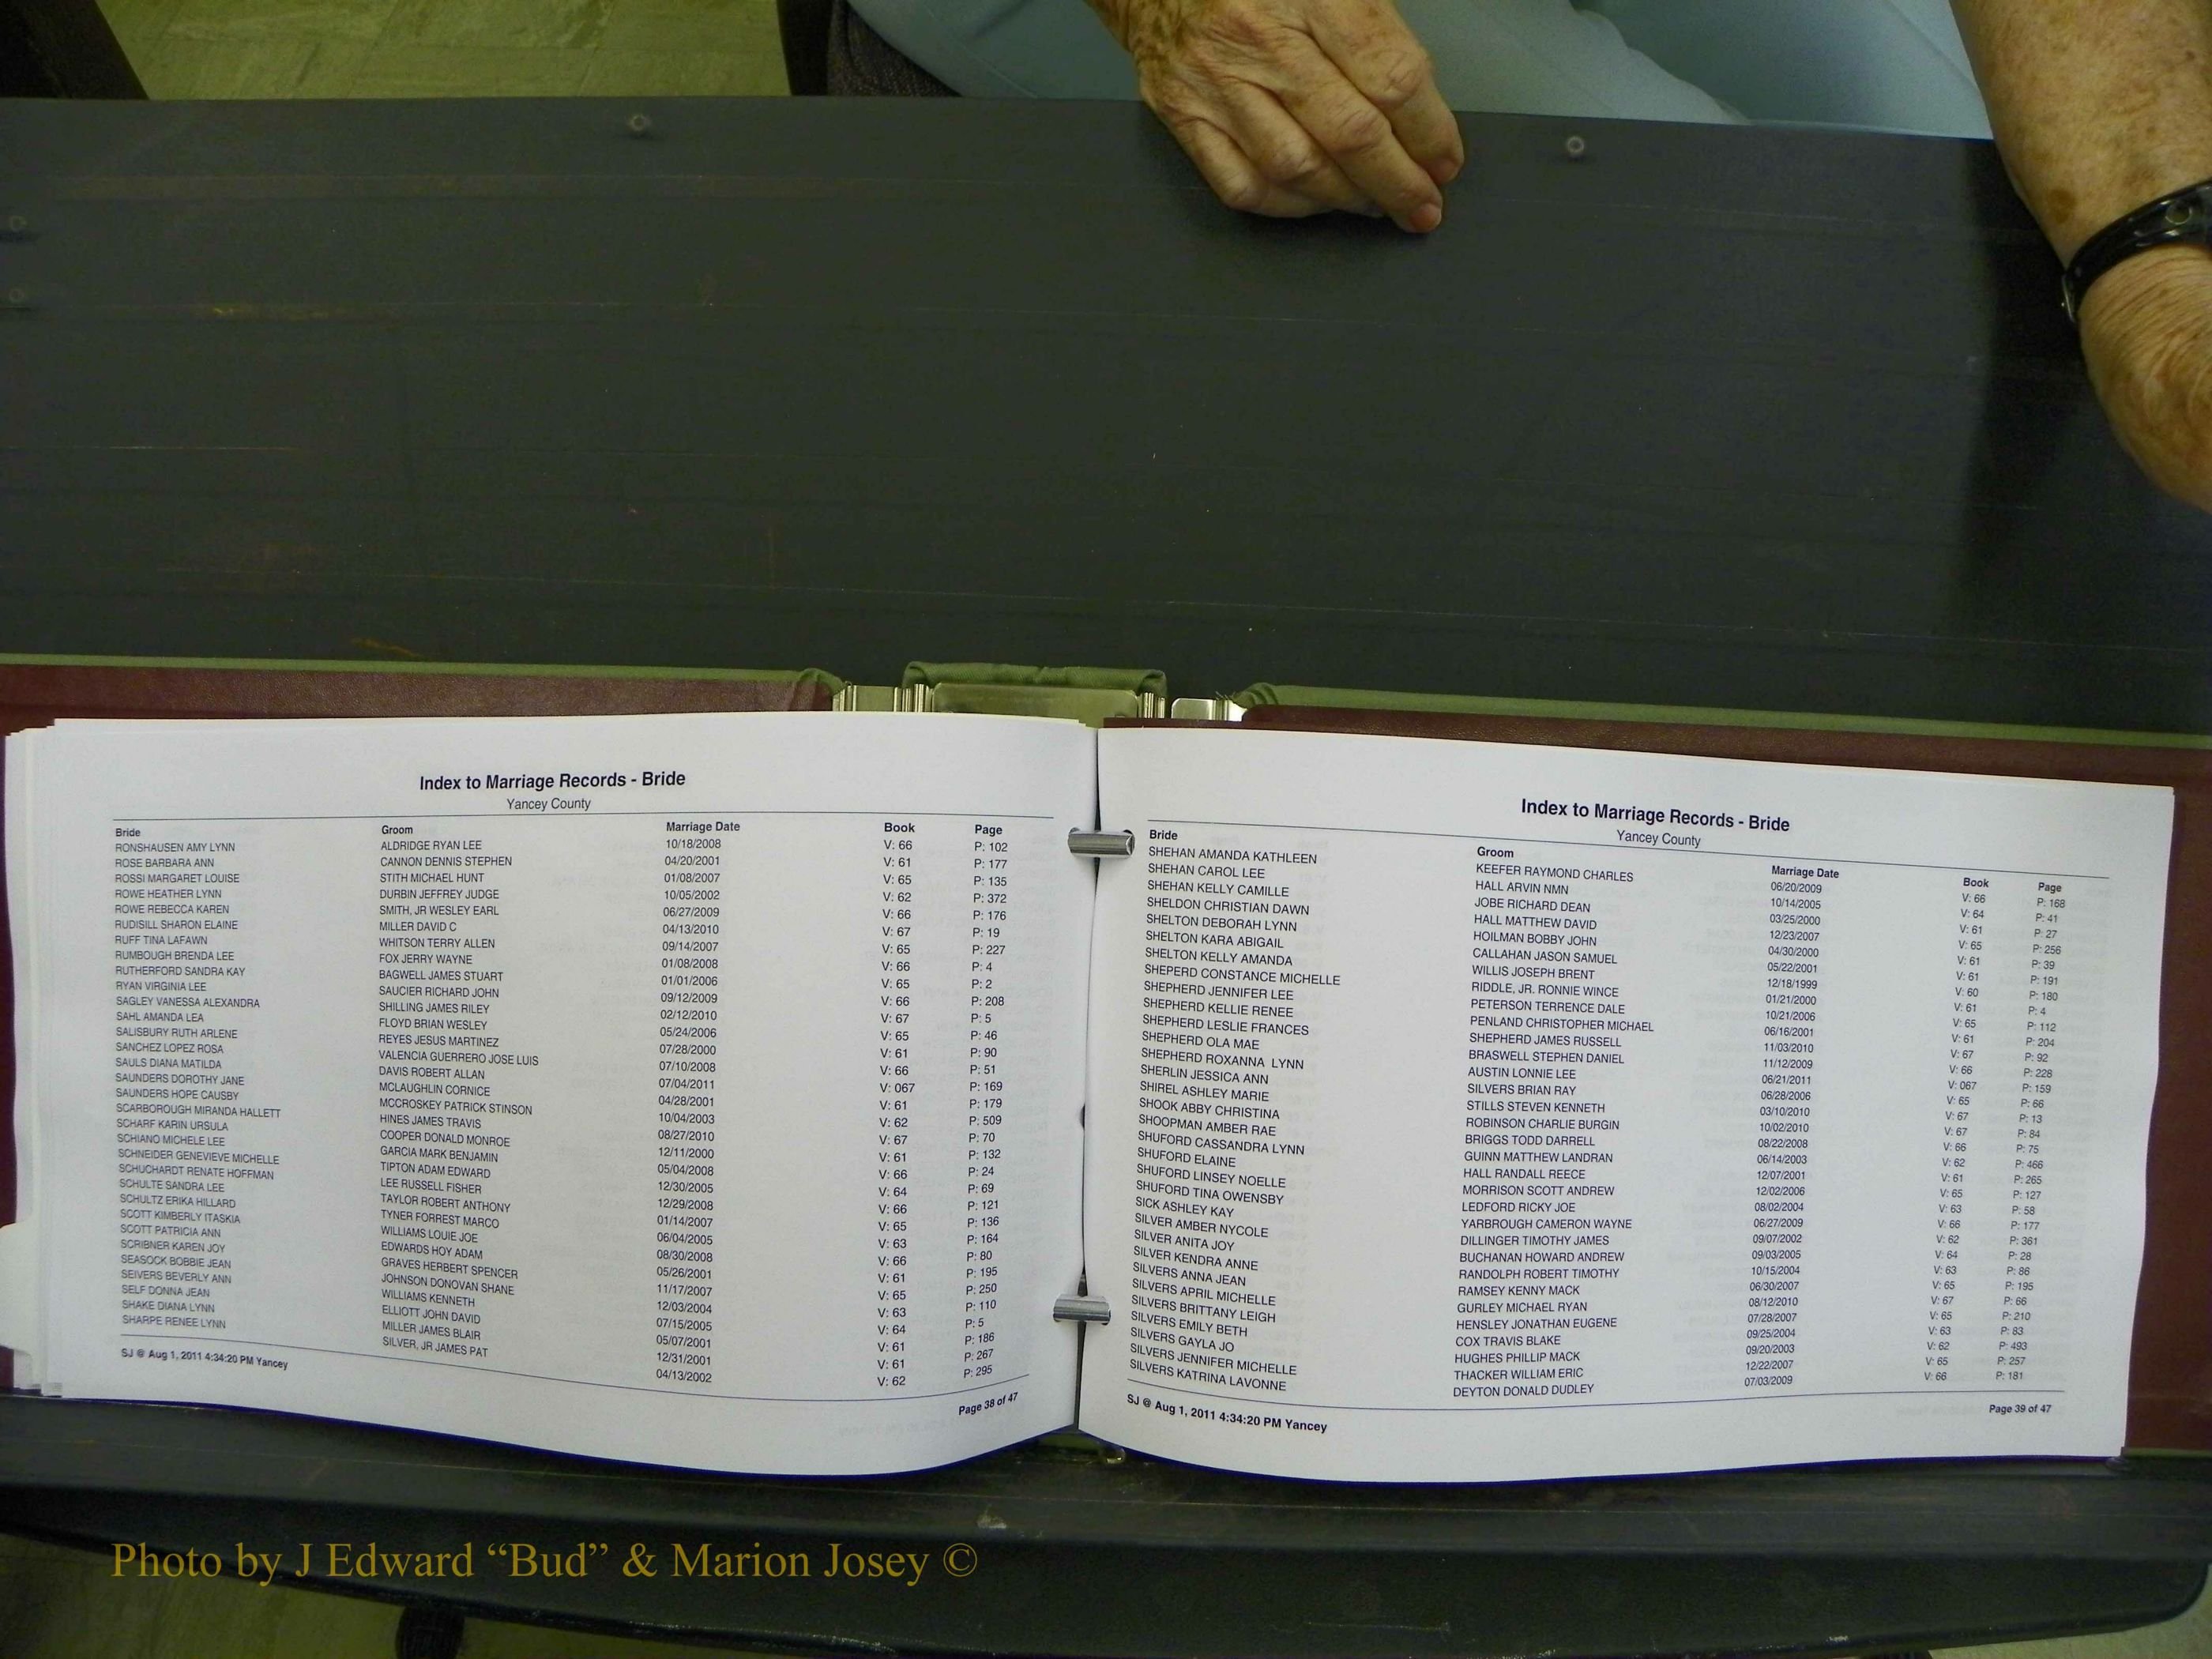 Index to Marriage Records - Bride
Yancey County
Bride Groom Marriage Date Book Page
RONSHAUSEN AMY LYNN ALDRIDGE RYAN LEE 10/18/2008 V: 66 P: 102
ROSE BARBARA ANN CANNON DENNIS STEPHEN 04/20/2001 V: 61 P: 177
ROSSI MARGARET LOUISE STITH MICHAEL HUNT 01/08/2007 V: 65 P: 135
ROWE HEATHER LYNN DURBIN JEFFREY JUDGE 10/05/2002 V: 62 P: 372
ROWE REBECCA KAREN SMITH, JR WESLEY EARL 06/27/2009 V: 66 P: 176
RUDISILL SHARON ELAINE MILLER DAVID C 04/13/2010 V: 67 P: 19
RUFF TINA LAFAWN WHITSON TERRY ALLEN 09/14/2007 V: 65 P: 227
RUMBOUGH BRENDA LEE FOX JERRY WAYNE 01/08/2008 V: 66 P: 4
RUTHERFORD SANDRA KAY BAGWELL JAMES STUART 01/01/2006 V: 65 P: 2
RYAN VIRGINIA LEE SAUCIER RICHARD JOHN 09/12/2009 V: 66 P: 208
SAGLEY VANESSA ALEXANDRA SHILLING JAMES RILEY 02/12/2010 V: 67 P: 5
SAHL AMANDA LEA FLOYD BRIAN WESLEY 05/24/2006 V: 65 P: 46
SALISBURY RUTH ARLENE REYES JESUS MARTINEZ 07/28/2000 V: 61 P: 90
SANCHEZ LOPEZ ROSA VALENCIA GUERRERO JOSE LUIS 07/10/2008 V: 66 P: 51
SAULS DIANA MATILDA DAVIS ROBERT ALLAN 07/04/2011 V: 067 P: 169
SAUNDERS DOROTHY JANE MCLAUGHLIN CORNICE 04/28/2001 V: 61 P: 179
SAUNDERS HOPE CAUSBY MCCROSKEY PATRICK STINSON 10/04/2003 V: 62 P: 509
SCARBOROUGH MIRANDA HALLETT HINES JAMES TRAVIS 08/27/2010 V: 67 P: 70
SCHARF KARIN URSULA COOPER DONALD MONROE 12/11/2000 V: 61 P: 132
SCHIANO MICHELE LEE GARCIA MARK BENJAMIN 05/04/2008 V: 66 P: 24
SCHNEIDER GENEVIEVE MICHELLE TIPTON ADAM EDWARD 12/30/2005 V: 64 P: 69
SCHUCHARDT RENATE HOFFMAN LEE RUSSELL FISHER 12/29/2008 V: 66 P: 121
SCHULTE SANDRA LEE TAYLOR ROBERT ANTHONY 01/14/2007 V: 65 P: 136
SCHULTZ ERIKA HILLARD TYNER FORREST MARCO 06/04/2005 V: 63 P: 164
SCOTT KIMBERLY ITASKIA WILLIAMS LOUIE JOE 08/30/2008 V: 66 P: 80
SCOTT PATRICIA ANN EDWARDS HOY ADAM 05/26/2001 V: 61 P: 195
SCRIBNER KAREN JOY GRAVES HERBERT SPENCER 11/17/2007 V: 65 P: 250
SEASOCK BOBBIE JEAN JOHNSON DONOVAN SHANE 12/03/2004 V: 63 P: 110
SEIVERS BEVERLY ANN WILLIAMS KENNETH 07/15/2005 V: 64 P: 5
SELF DONNA JEAN ELLIOTT JOHN DAVID 05/07/2001 V: 61 P: 186
SHAKE DIANA LYNN MILLER JAMES BLAIR 12/31/2001 V: 61 P: 267
SHARPE RENEE LYNN SILVER, JR JAMES PAT 04/13/2002 V: 62 P: 295
SJ @ Aug 1, 2011 4:34:20 PM Yancey Page 38 of 47
Index to Marriage Records - Bride
Yancey County
Bride Groom Marriage Date Book Page
SHEHAN AMANDA KATHLEEN KEEFER RAYMOND CHARLES 06/20/2009 V: 66 P: 168
SHEHAN CAROL LEE HALL ARVIN NMN 10/14/2005 V: 64 P: 41
SHEHAN KELLY CAMILLE JOBE RICHARD DEAN 03/25/2000 V: 61 P: 27
SHELDON CHRISTIAN DAWN HALL MATTHEW DAVID 12/23/2007 V: 65 P: 256
SHELTON DEBORAH LYNN HOILMAN BOBBY JOHN 04/30/2000 V: 61 P: 39
SHELTON KARA ABIGAIL CALLAHAN JASON SAMUEL 05/22/2001 V: 61 P: 191
SHELTON KELLY AMANDA WILLIS JOSEPH BRENT 12/18/1999 V: 60 P: 180
SHEPERD CONSTANCE MICHELLE RIDDLE, JR. RONNIE WINCE 01/21/2000 V: 61 P: 4
SHEPHERD JENNIFER LEE PETERSON TERRENCE DALE 10/21/2006 V: 65 P: 112
SHEPHERD KELLIE RENEE PENLAND CHRISTOPHER MICHAEL 06/16/2001 V: 61 P: 204
SHEPHERD LESLIE FRANCES SHEPHERD JAMES RUSSELL 11/03/2010 V: 67 P: 92
SHEPHERD OLA MAE BRASWELL STEPHEN DANIEL 11/12/2009 V: 66 P: 228
SHEPHERD ROXANNA LYNN AUSTIN LONNIE LEE 06/21/2011 V: 067 P: 159
SHERLIN JESSICA ANN SILVERS BRIAN RAY 06/28/2006 V: 65 P: 66
SHIREL ASHLEY MARIE STILLS STEVEN KENNETH 03/10/2010 V: 67 P: 13
SHOOK ABBY CHRISTINA ROBINSON CHARLIE BURGIN 10/02/2010 V: 67 P: 84
SHOOPMAN AMBER RAE BRIGGS TODD DARRELL 08/22/2008 V: 66 P: 75
SHUFORD CASSANDRA LYNN GUINN MATTHEW LANDRAN 06/14/2003 V: 62 P: 466
SHUFORD ELAINE HALL RANDALL REECE 12/07/2001 V: 61 P: 265
SHUFORD LINSEY NOELLE MORRISON SCOTT ANDREW 12/02/2006 V: 65 P: 127
SHUFORD TINA OWENSBY LEDFORD RICKY JOE 08/02/2004 V: 63 P: 58
SICK ASHLEY KAY YARBROUGH CAMERON WAYNE 06/27/2009 V: 66 P: 177
SILVER AMBER NYCOLE DILLINGER TIMOTHY JAMES 09/07/2002 V: 62 P: 361
SILVER ANITA JOY BUCHANAN HOWARD ANDREW 09/03/2005 V: 64 P: 28
SILVER KENDRA ANNE RANDOLPH ROBERT TIMOTHY 10/15/2004 V: 63 P: 86
SILVERS ANNA JEAN RAMSEY KENNY MACK 06/30/2007 V: 65 P: 195
SILVERS APRIL MICHELLE GURLEY MICHAEL RYAN 08/12/2010 V: 67 P: 66
SILVERS BRITTANY LEIGH HENSLEY JONATHAN EUGENE 07/28/2007 V: 65 P: 210
SILVERS EMILY BETH COX TRAVIS BLAKE 09/25/2004 V: 63 P: 83
SILVERS GAYLA JO HUGHES PHILLIP MACK 09/20/2003 V: 62 P: 493
SILVERS JENNIFER MICHELLE THACKER WILLIAM ERIC 12/22/2007 V: 65 P: 257
SILVERS KATRINA LAVONNE DEYTON DONALD DUDLEY 07/03/2009 V: 66 P: 181
SJ @ Aug 1, 2011 4:34:20 PM Yancey Page 39 of 47
Photo by J Edward “Bud” & Marion Josey ©